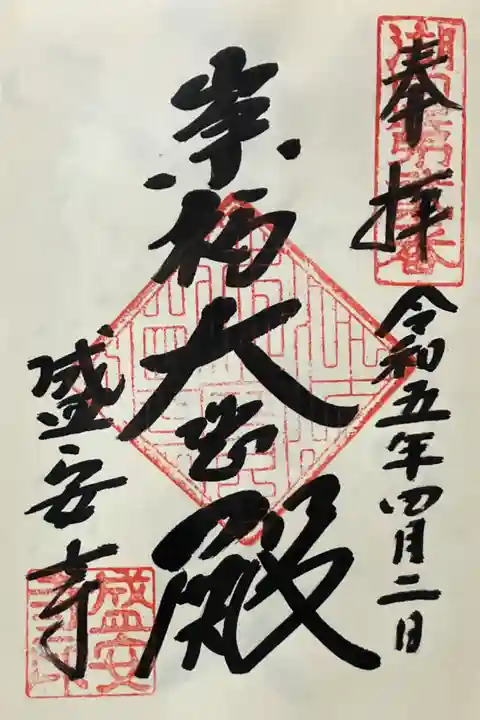 奉拝
令和五年四月二日
崇福大悲殿
盛安寺
盛安寺印